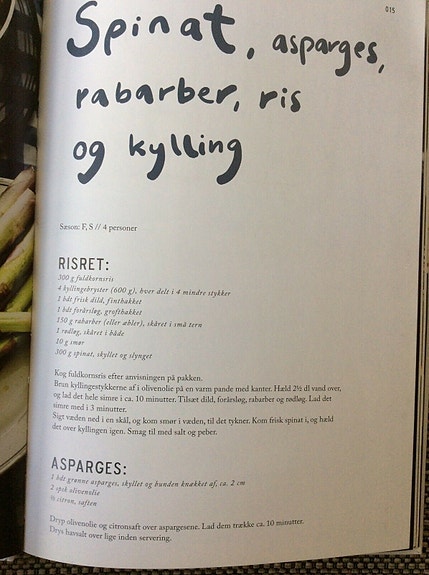 015
Spinat, asparges,
rabarber, ris
og kylling
Sæson: F, S // 4 personer
RISRET:
300 g fuldkornsris
4 kyllingebryster (600 g), hver delt i 4 mindre stykker
1 bdt frisk dild, finthakket
1 bdt forårsløg, grofthakket
150 g rabarber (eller æbler), skåret i små tern
1 rødløg, skåret i både
10 g smør
300 g spinat, skyllet og slynget
Kog fuldkornsris efter anvisningen på pakken.
Brun kyllingestykkerne af i olivenolie på en varm pande med kanter. Hæld 2½ dl vand over,
og lad det hele simre i ca. 10 minutter. Tilsæt dild, forårsløg, rabarber og rødløg. Lad det
simre med i 3 minutter.
Sigt væden ned i en skål, og kom smør i væden, til det tykner. Kom frisk spinat i, og hæld
det over kyllingen igen. Smag til med salt og peber.
ASPARGES:
1 bdt grønne asparges, skyllet og bunden knækket af, ca. 2 cm
2 spsk olivenolie
½ citron, saften
Dryp olivenolie og citronsaft over aspargesene. Lad dem trække ca. 10 minutter.
Drys havsalt over lige inden servering.